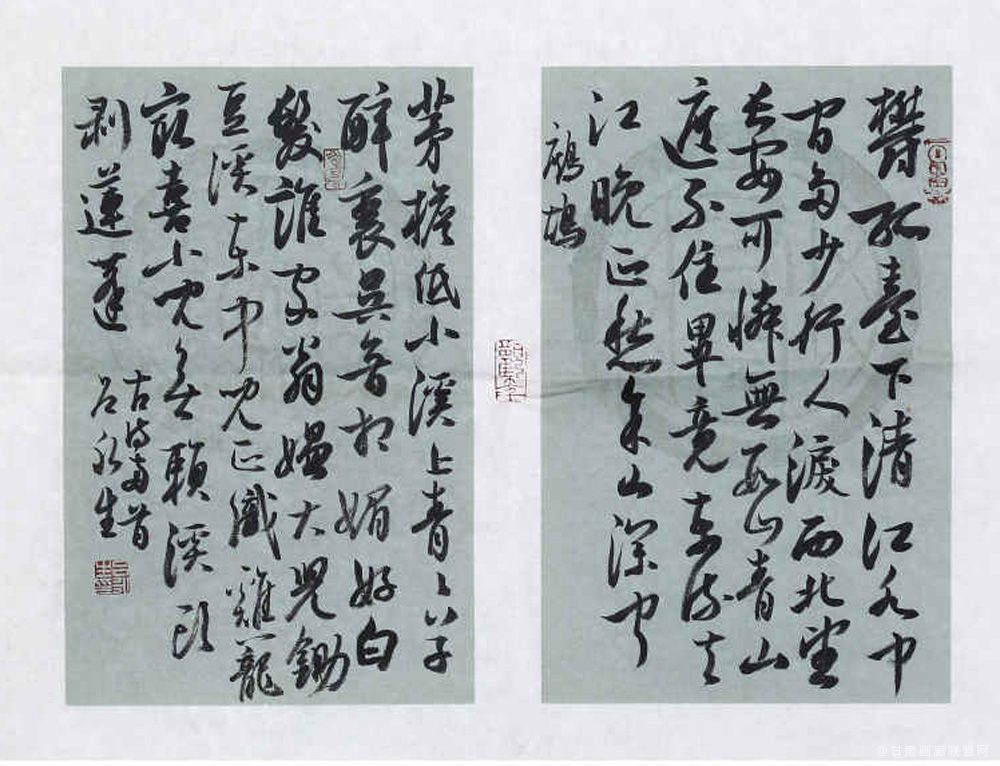 鬱孤臺下清江水中
间多少行人淚西北望
長安可憐無数山青山
遮不住畢竟东流去
江晚正愁余山深闻
鹧鸪
茅檐低小溪上青々草
醉裏吴音相媚好白
髮誰家翁媪大兒鋤
豆溪东中兒正織雞籠
最喜小兒无賴溪头
剥蓮蓬
古诗两首
吕永生